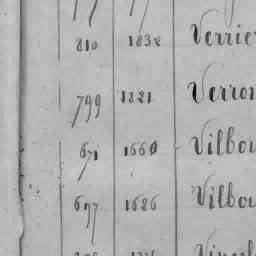 810 1832 Verrie
799 1821 Verron
671 1660 Vilbou
697 1686 Vilbou